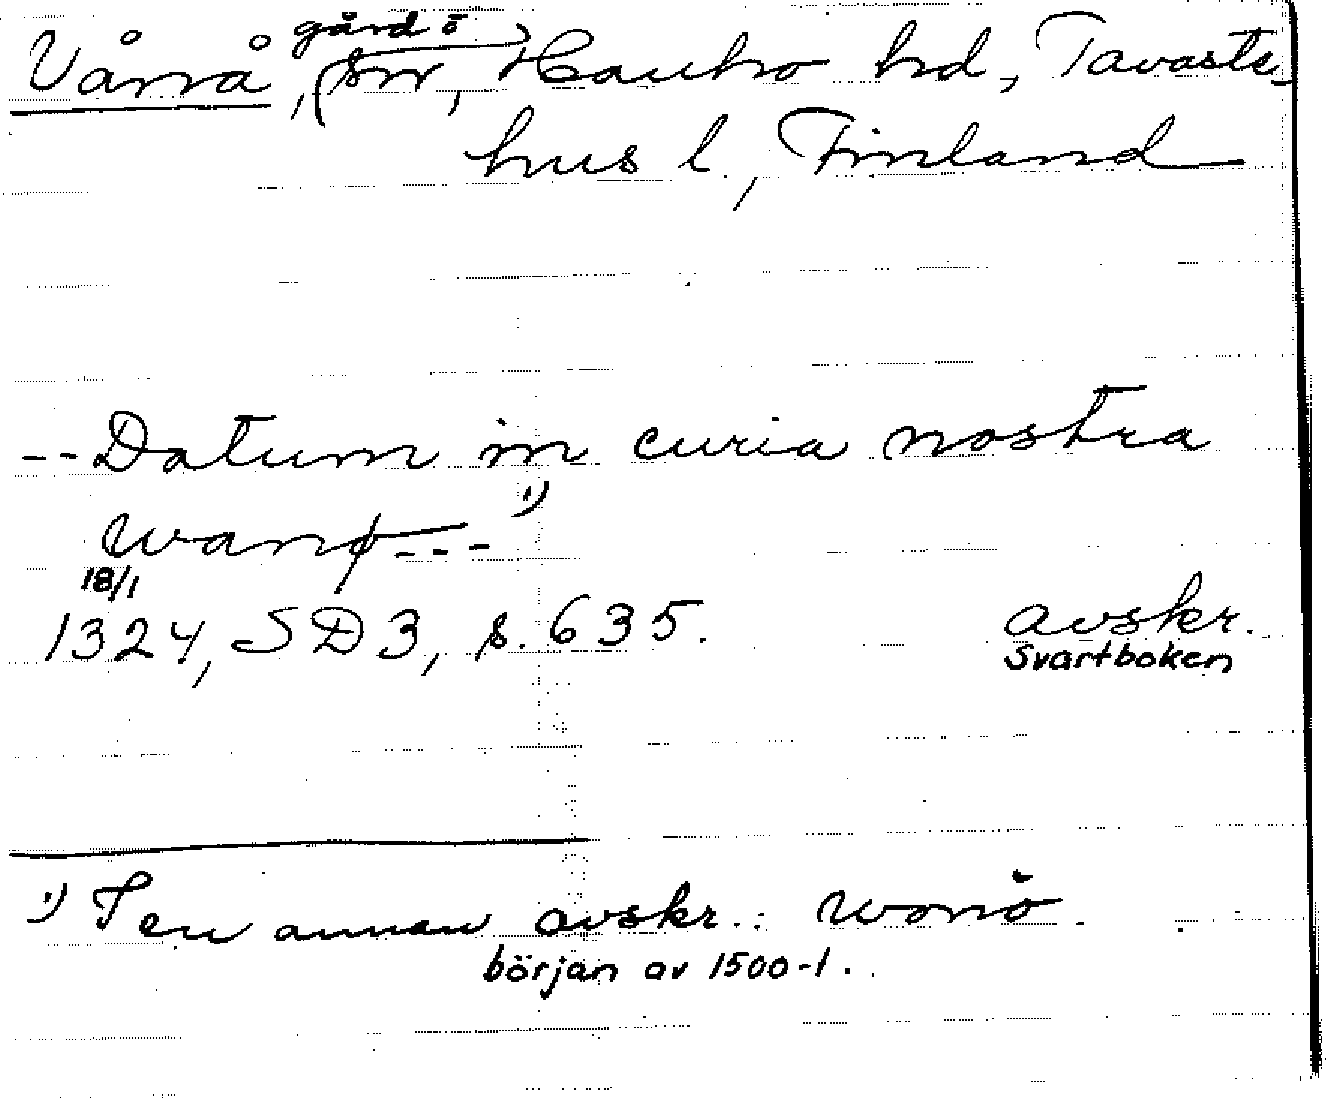 gård ö
Vånå, (sn, Hauho hd, Tavaste-
hus l., Finland
-- Datum in curia nostra
wanø --- 1)
18/1
1324, SD3, s. 635. avskr.
Svartboken
1) I en annan avskr.: wonö.
början av 1500-l.